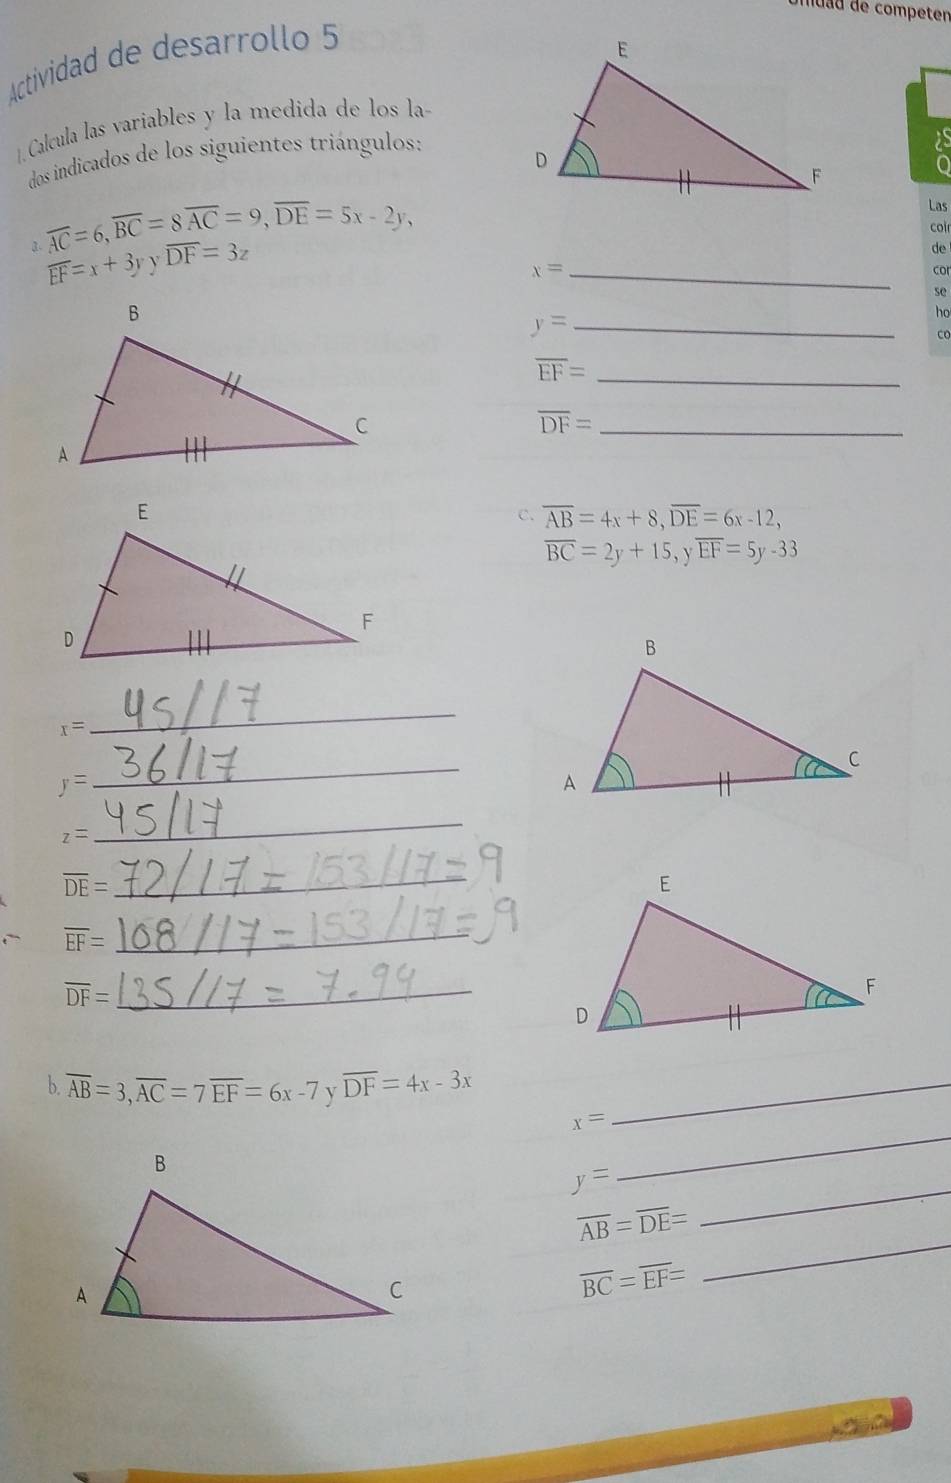 Unidad de competen
Actividad de desarrollo 5
1. Calcula las variables y la medida de los la-
dos indicados de los siguientes triángulos:
a. AC = 6, BC = 8 AC = 9, DE = 5x - 2y,
EF = x + 3y y DF = 3z
B
A
C
E
D
F
x = 45/17
y = 36/17
z = 45/17
DE = 72/17 = 153/17 = 9
EF = 108/17 = 153/17 = 9
DF = 135/17 = 7.94
b. AB = 3, AC = 7 EF = 6x - 7 y DF = 4x - 3x
B
A
C
E
D
F
x =
y =
EF =
DF =
c. AB = 4x + 8, DE = 6x - 12,
BC = 2y + 15, y EF = 5y - 33
B
A
C
E
D
F
x =
y =
AB = DE =
BC = EF =
¿S
Q
Las
de
se